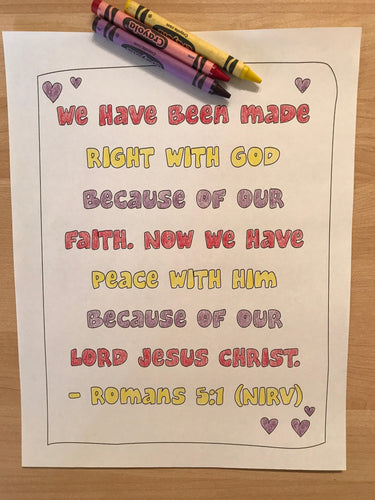 Crayola
We Have Been Made
Right With God
Because Of Our
Faith. Now We Have
Peace With Him
Because Of Our
Lord Jesus Christ.
- Romans 5:1 (NIRV)